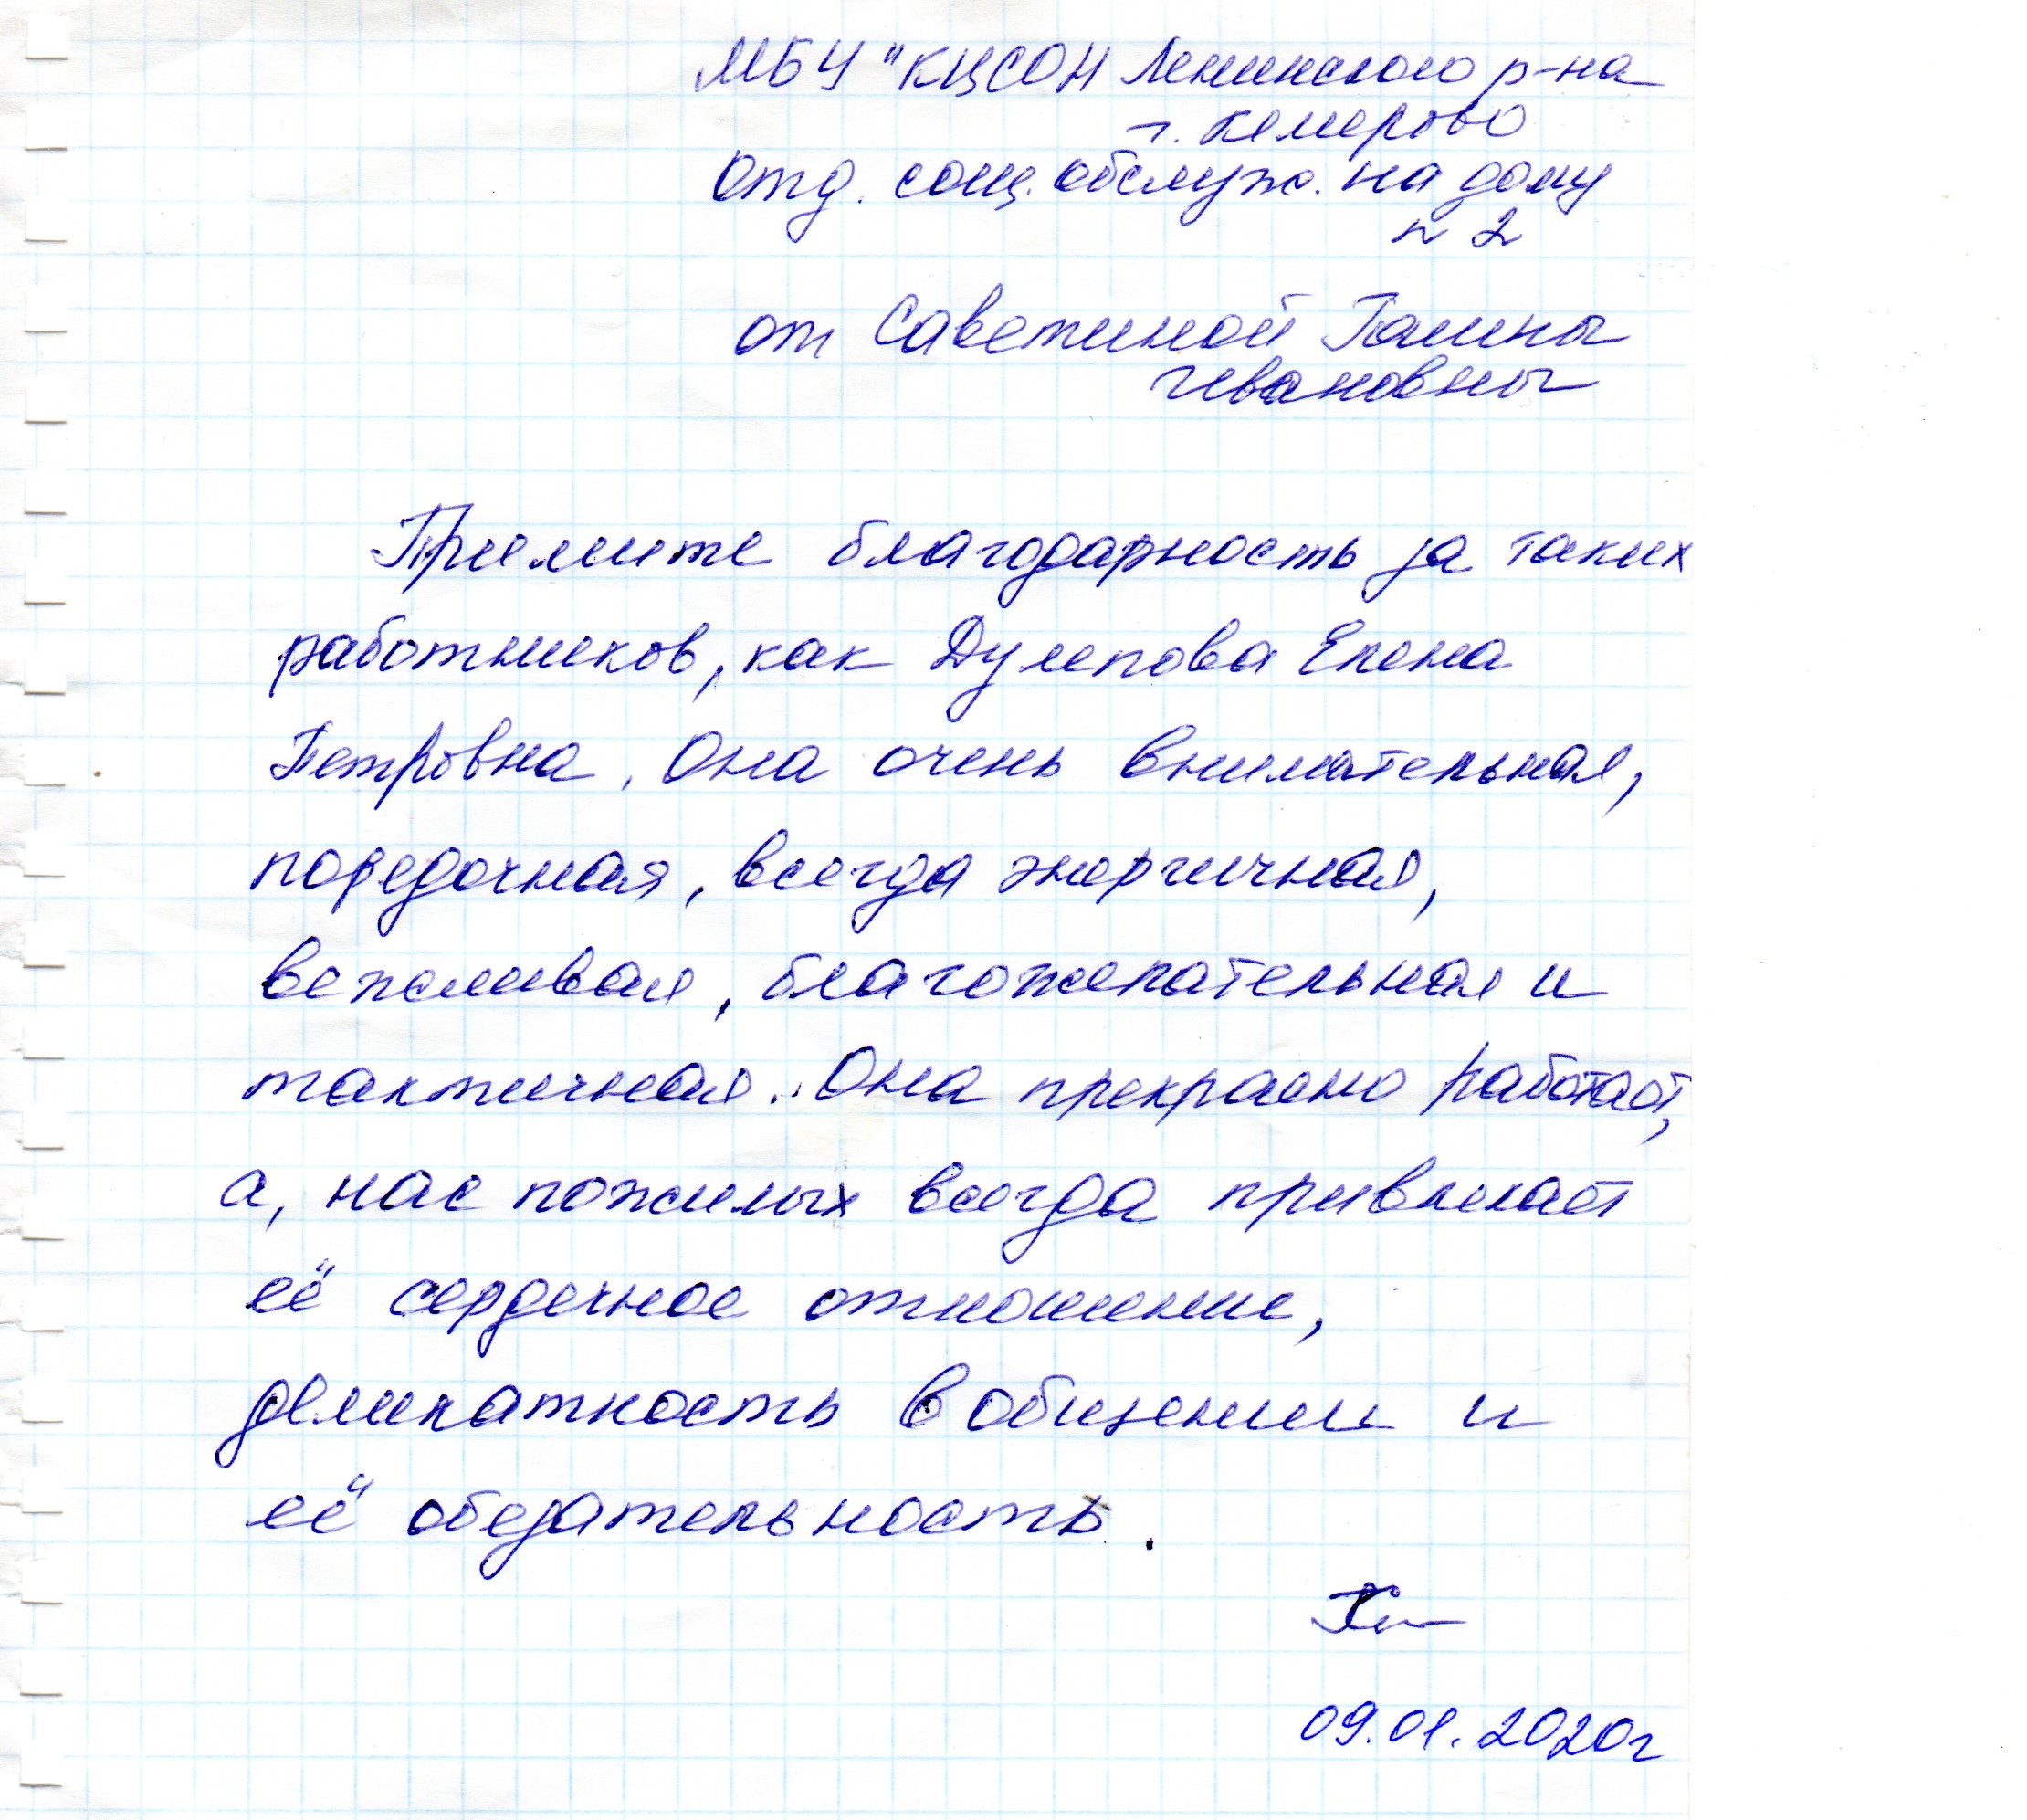 МБУ "КЦСОН Ленинского р-на
г. Кемерово
Отд. соц. обслуж. на дому
N 2
от Саветиной Галины
Ивановны
Примите благодарность за таких
работников, как Дулепова Елена
Петровна. Она очень внимательная,
поредочная, всегда энергичная,
вежливая, благожелательная и
тактичная. Она прекрасно работает,
а, нас пожилых всегда привлекает
её сердечное отношение,
деликатность в общении и
её обезательность.
09.01.2020г